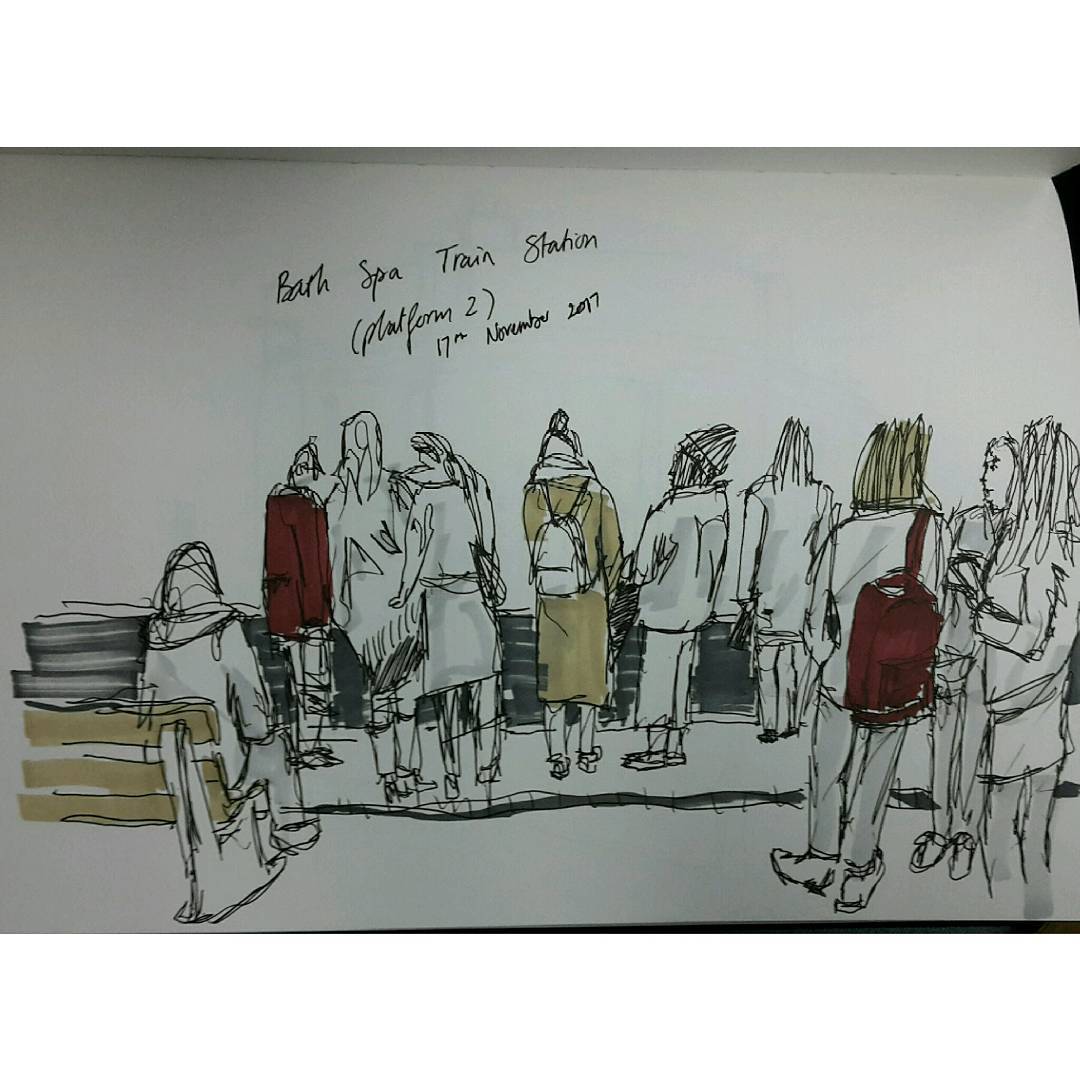 Bath Spa Train Station
(platform 2)
17th November 2017